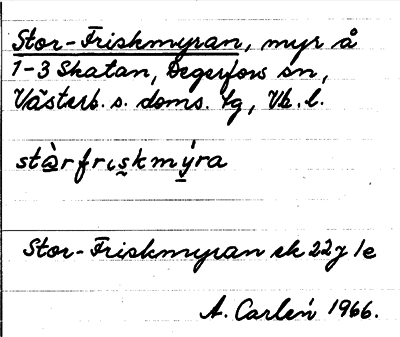 Stor-Friskmyran, myr å
1-3 Skatan, Degerfors sn,
Västerb. s. doms. tg, Vb. l.
stà̱rfrıs̰kmý̱ra
Stor-Friskmyran ek 22 j 1e
A. Carlén 1966.